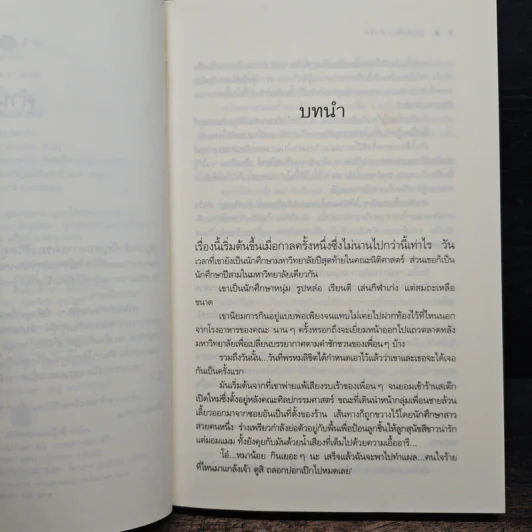 บทนำ
เรื่องนี้เริ่มต้นขึ้นเมื่อกาลครั้งหนึ่งซึ่งไม่นานไปกว่านี้เท่าไร วัน
เวลาที่เขายังเป็นนักศึกษามหาวิทยาลัยปีสุดท้ายในคณะนิติศาสตร์ ส่วนเธอก็เป็น
นักศึกษาปีสามในมหาวิทยาลัยเดียวกัน
เขาเป็นนักศึกษาหนุ่ม รูปหล่อ เรียนดี เล่นกีฬาเก่ง แต่สมถะเหลือ
ขนาด
เขานิยมการกินอยู่แบบพอเพียงจนแทบไม่เคยไปฝากท้องไว้ที่ไหนนอก
จากโรงอาหารของคณะ นาน ๆ ครั้งหรอกถึงจะเยี่ยมหน้าออกไปแถวตลาดหลัง
มหาวิทยาลัยเพื่อเปลี่ยนบรรยากาศตามคำชักชวนของเพื่อน ๆ บ้าง
รวมถึงวันนั้น...วันที่พรหมลิขิตได้กำหนดเอาไว้แล้วว่าเขาและเธอจะได้เจอ
กันเป็นครั้งแรก
มันเริ่มต้นจากที่เขาพ่ายแพ้เสียงรบเร้าของเพื่อน ๆ จนยอมเข้าร้านสเต๊ก
เปิดใหม่ซึ่งตั้งอยู่หลังคณะศิลปกรรมศาสตร์ ขณะที่เดินนำหน้ากลุ่มเพื่อนชายล้วน
เลี้ยวออกมาจากซอยอันเป็นที่ตั้งของร้าน เส้นทางก็ถูกขวางไว้โดยนักศึกษาสาว
สวยคนหนึ่ง ร่างเพรียวกำลังย่อตัวอยู่กับพื้นเพื่อป้อนลูกชิ้นให้ลูกสุนัขสีขาวน่ารัก
แต่มอมแมม ทั้งยังคุยกับมันด้วยน้ำเสียงที่เต็มไปด้วยความเอื้ออารี...
'โอ๋...หมาน้อย กินเยอะ ๆ นะ เสร็จแล้วฉันจะพาไปทำแผล...คนใจร้าย
ที่ไหนมาแกล้งเจ้า ดูสิ ถลอกปอกเปิกไปหมดเลย'